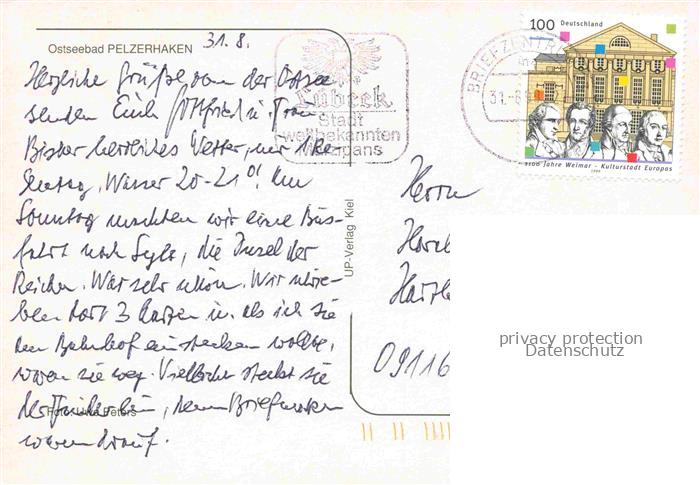 Ostseebad PELZERHAKEN
31.8.
Herzliche Grüße von der Ostsee
senden Euch Gottfried u. Frau
Bisher herrliches Wetter, nur 1 Re-
gentag, Wasser 20-21°! Am
Sonntag machten wir eine Bus-
fahrt nach Sylt, die Insel der
Reichen. War sehr schön. Wir schrie-
ben dort 3 Karten u. als ich sie
am Bahnhof einstecken wollte,
waren sie weg. Vielleicht steckt sie
der Finder ein, denn Briefmarken
waren drauf.
Foto: Uwe Peters
UP-Verlag Kiel
Lübeck
Stadt
weltbekannten
Marzipans
BRIEFZENTR
31.-8
100 Deutschland
1100 Jahre Weimar - Kulturstadt Europas
1999
Herrn
Horn
09116
privacy protection
Datenschutz